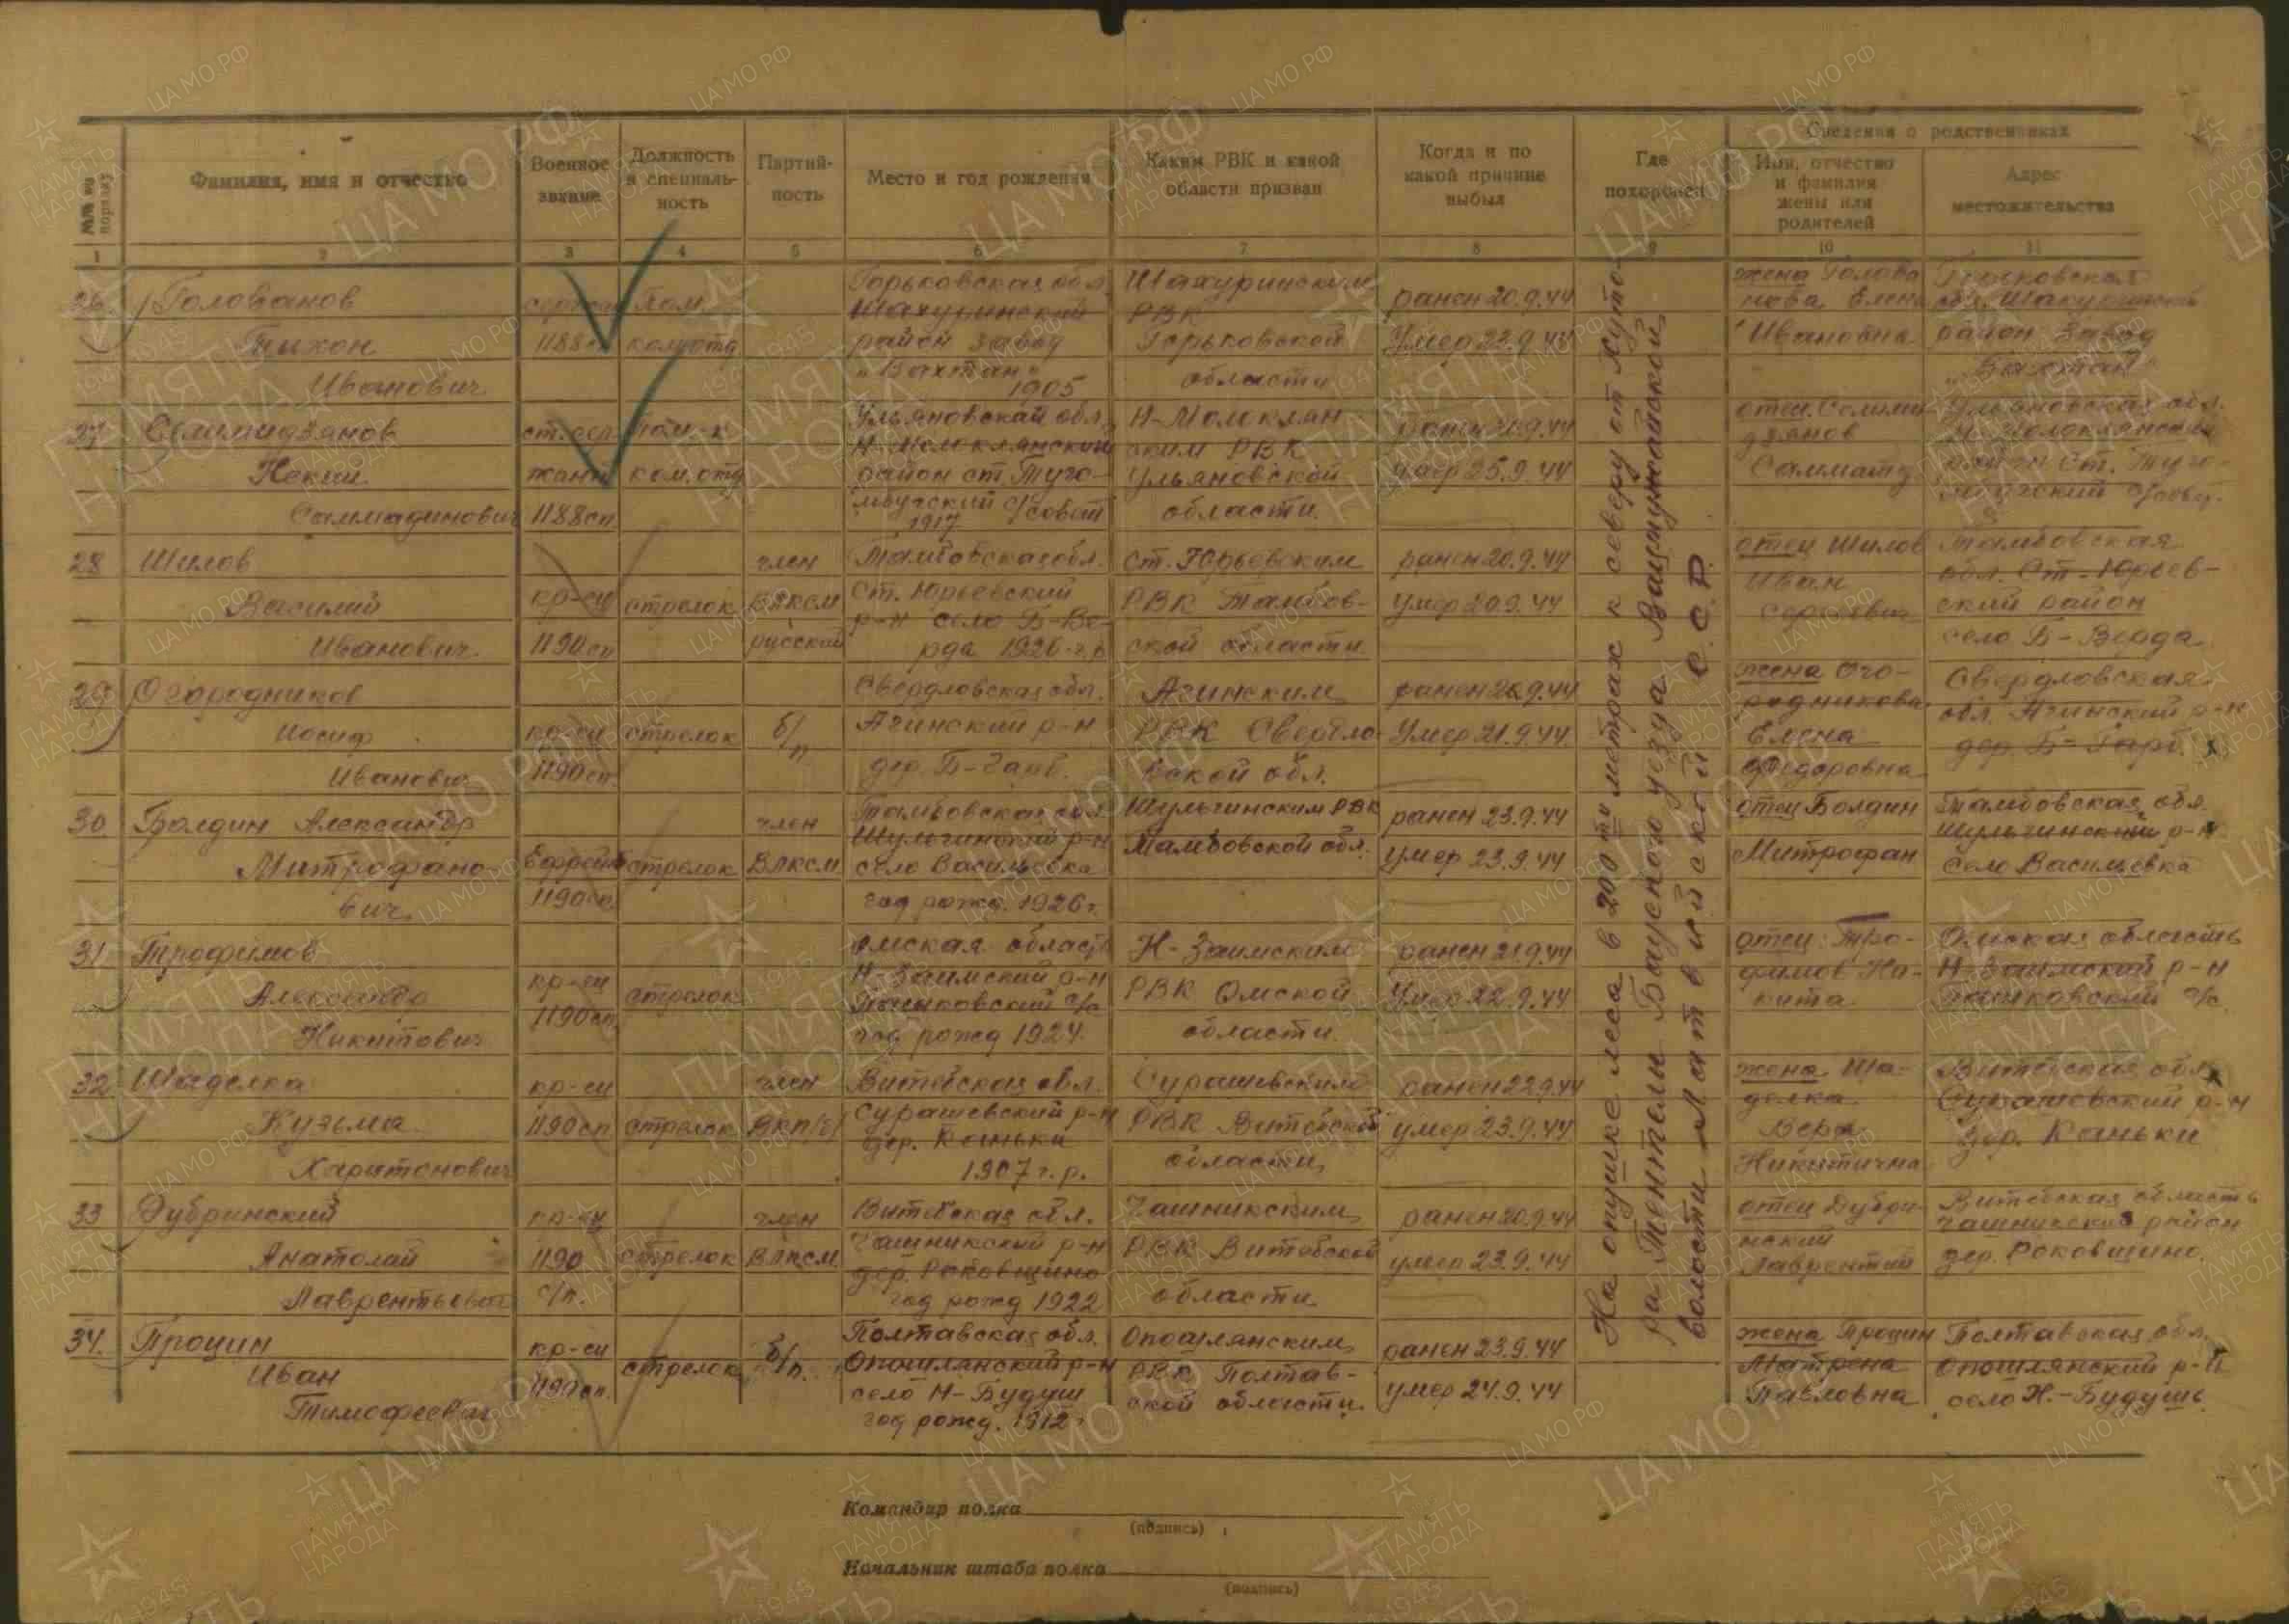 №№ по порядку
Фамилия, имя и отчество
Военное звание
Должность и специаль-ность
Партий-ность
Место и год рождения
Каким РВК и какой области призван
Когда и по какой причине выбыл
Где похоронен
Сведения о родственниках
Имя, отчество и фамилия жены или родителей
Адрес местожительства
1 2 3 4 5 6 7 8 9 10 11
26 Голованов
Тихон
Иванович
1188сп
пом. ком.отд
Горьковская обл.
Шахуринский
район завод
"Вахтан"
1905
Шахуринским
РВК
Горьковской
области
ранен 20.9.44
Умер 22.9.44
жена Голова
нова Елена
Ивановна
Горьковская
обл. Шахуринский
район завод
"Вахтан"
27
Саммадинович
ст. сер
жант
1188сп
пом-к
ком.отд
Ульяновская обл.
Н-Малоклянский
район ст. Туго-
1917
Н-Молоклян
ским РВК
Ульяновской
области
умер 25.9.44
отец
Ульяновская обл.
28 Шилов
Василий
Иванович
кр-ец
1190сп
стрелок
член
ВЛКСМ
русский
Тамбовская обл.
Ст. Юрьевский
р-н село Б-Ве-
рда 1926 г.р
ст. Юрьевским
РВК Тамбов-
ской области
ранен 20.9.44
умер 20.9.44
отец Шилов
Иван
Сергеевич
Тамбовская
обл. Ст. Юрьев-
ский район
село Б-Верда
29 Огородников
Иосиф
Иванович
кр-ец
1190сп
стрелок
б/п
Свердловская обл.
Ачинский р-н
Ачинским
РВК Свердло
вской обл.
Умер 21.9.44
жена Ого-
родникова
Елена
Федоровна
Свердловская
обл. Ачинский р-н
30 Болдин Александр
Митрофано
вич
Ефрейт
1190сп
стрелок
член
ВЛКСМ
Тамбовская обл
Шульгинский р-н
село Васильевка
год рожд. 1926г.
Шульгинским РВК
Тамбовской обл.
ранен 23.9.44
умер 23.9.44
отец Болдин
Митрофан
Тамбовская обл.
Шульгинский р-н
село Васильевка
31 Трофимов
Александр
Никитович
кр-ец
1190сп
стрелок
Омская область
Н-Заимский р-н
год рожд 1924.
Н-Заимским
РВК Омской
области
ранен 21.9.44
Умер 22.9.44
отец Тро-
фимов Ни-
кита
Омская область
Н-Заимский р-н
32 Шаделка
Кузьма
Харитонович
кр-ец
1190сп
стрелок
член
ВКП/б/
Витебская обл.
Сурашевский р-н
дер. Каньки
1907 г.р.
Сурашевским
РВК Витебской
области
ранен 22.9.44
умер 23.9.44
жена Ша-
делка
Вера
Никитична
Витебская обл.
Сурашевский р-н
дер. Каньки
33 Дубринский
Анатолий
Лаврентьевич
кр-ец
1190
с/п.
стрелок
член
ВЛКСМ
Витебская обл.
Чашникский р-н
дер. Роковщино
год рожд 1922
Чашникским
РВК Витебской
области
ранен 20.9.44
умер 23.9.44
отец Дубри-
нский
Лаврентий
Витебская область
Чашникский район
дер. Роковщино.
34. Процин
Иван
Тимофеевич
кр-ец
1190сп.
стрелок
б/п.
Полтавская обл.
Опошлянский р-н
село Н-Будуш
год рожд. 1912г
Опошлянским
РВК Полтав-
ской области.
ранен 23.9.44
умер 24.9.44
жена Процин
Матрена
Павловна
Полтавская обл.
Опошлянский р-н
село Н.-Будушь
На опушке леса в 200ти метрах к северу от хуто-
ра Тентели Бауского уезда
волости Латвийской С.С.Р.
Командир полка
(подпись)
Начальник штаба полка
(подпись)
ЦА МО РФ
ПАМЯТЬ НАРОДА